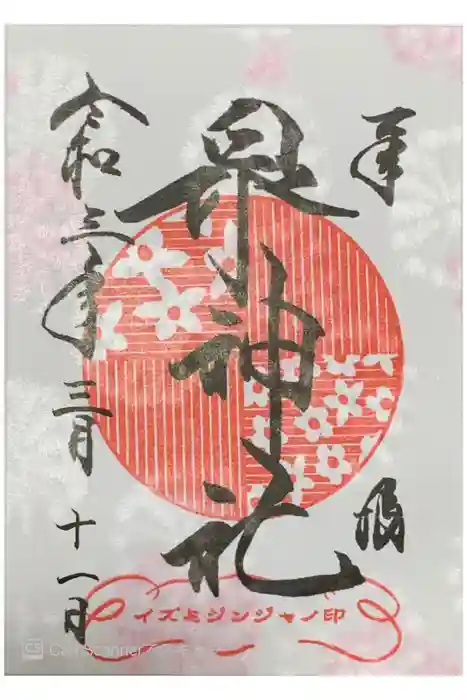 奉拝
泉神社
令和三年三月十一日
イズミジンジャノ印
CS CamScanner